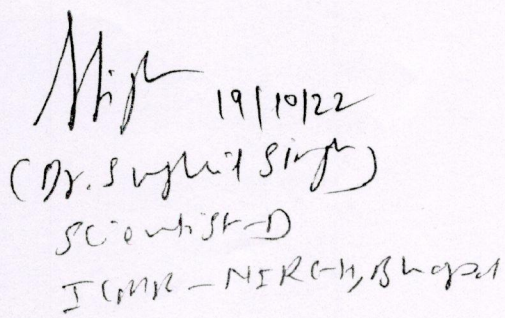 19/10/22
(Dr. Singh)
Scientist-D
ICMR-NIREH, Bhopal